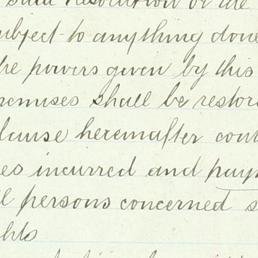 said Resolution or the
subject to anything done
the powers given by this
premises shall be restor
clause hereafter cont
es incurred and pay
ll persons concerned s
ghts